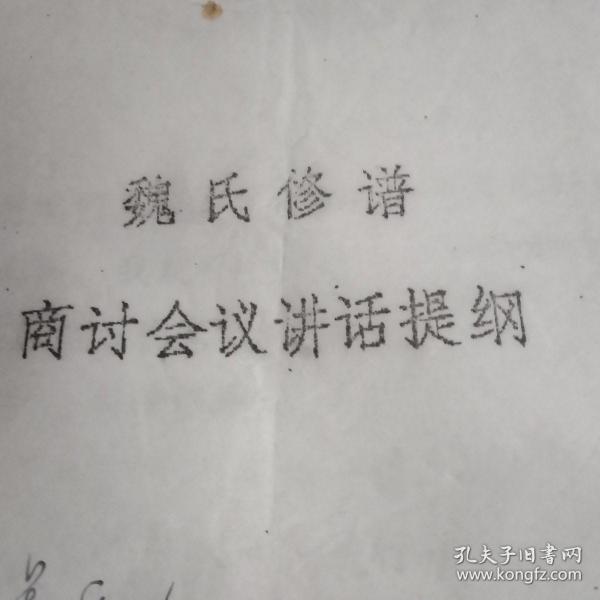 魏氏修谱
商讨会议讲话提纲
孔夫子旧书网
www.kongfz.com